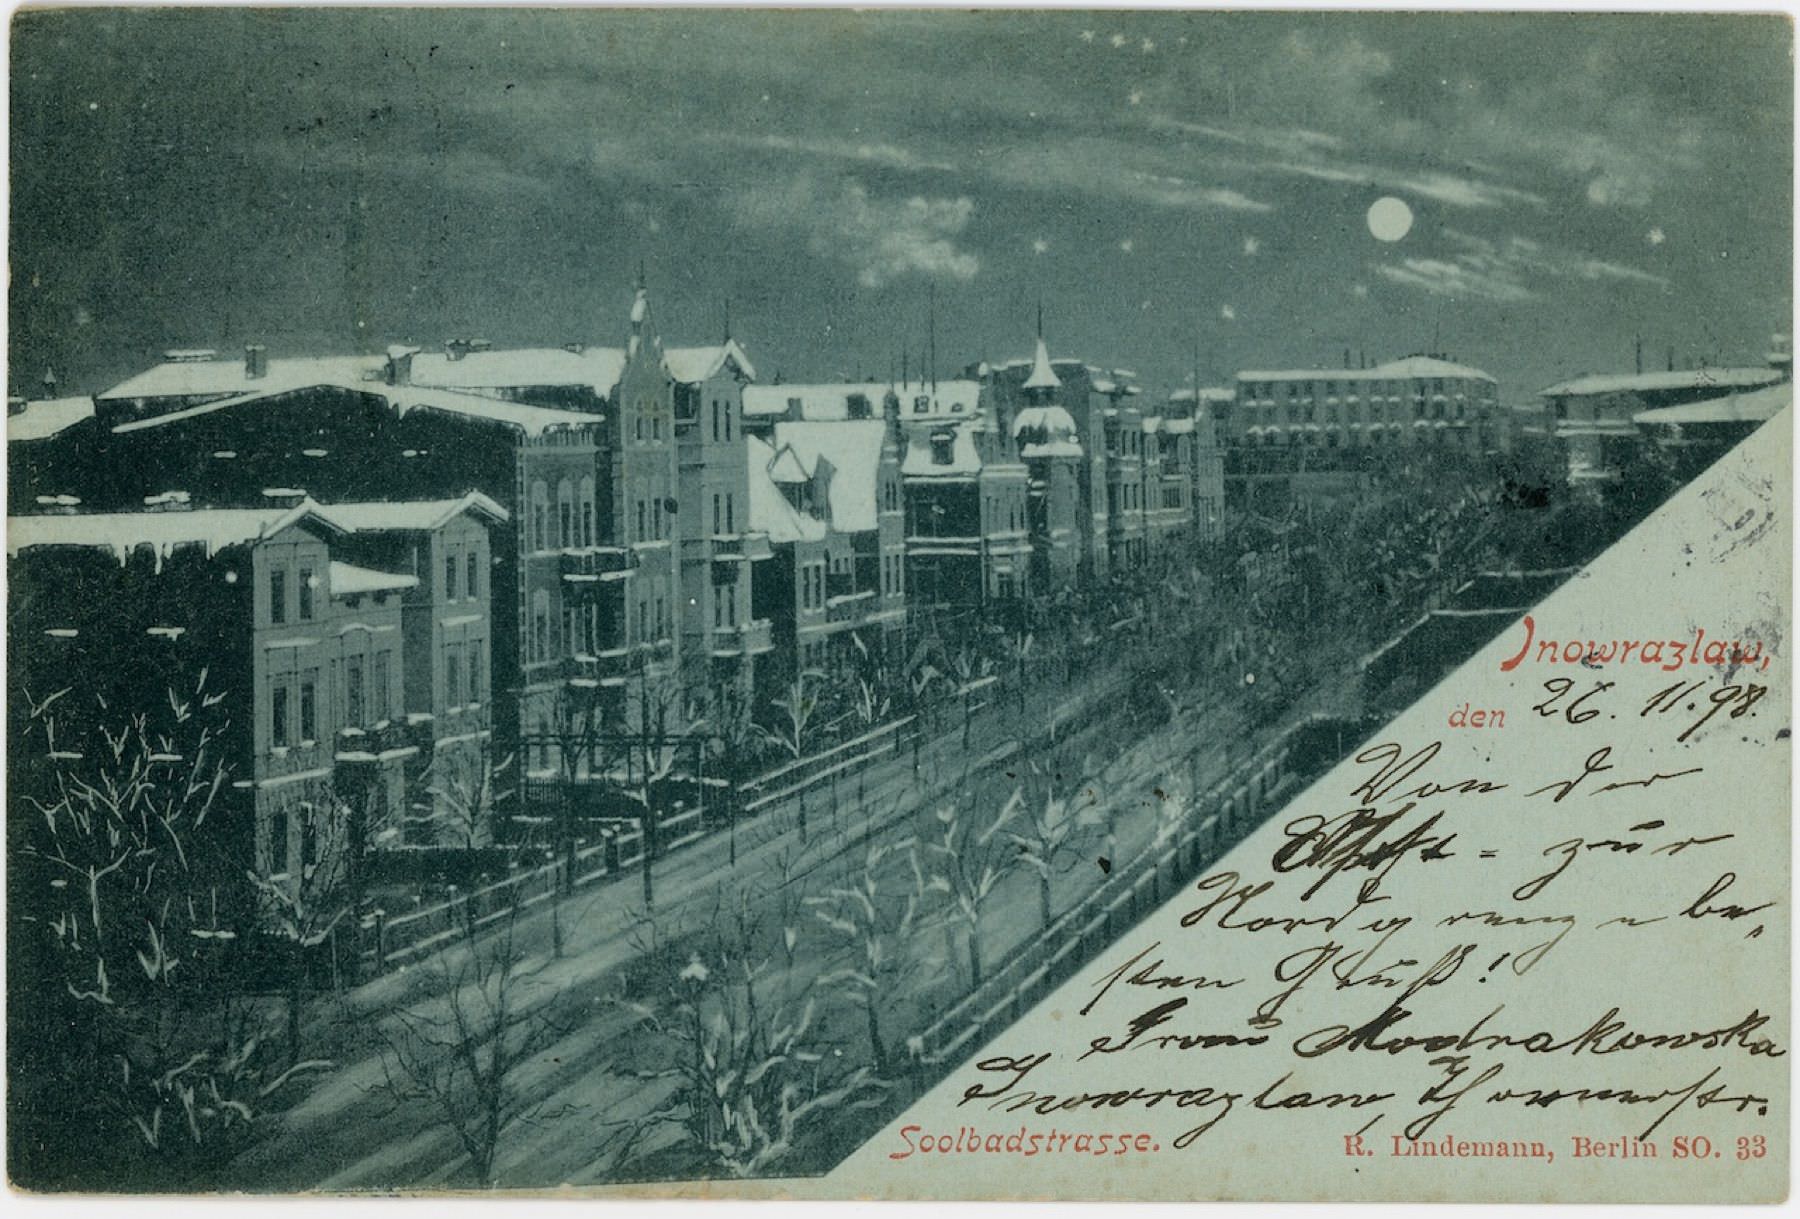 Inowrazlaw,
den 26. 11. 98.
Von der
Ost = zur
Nordgrenze be„
sten Gruß!
Frau Modrakowska
Inowrazlaw, Thornerstr.
Soolbadstrasse.
R. Lindemann, Berlin SO. 33